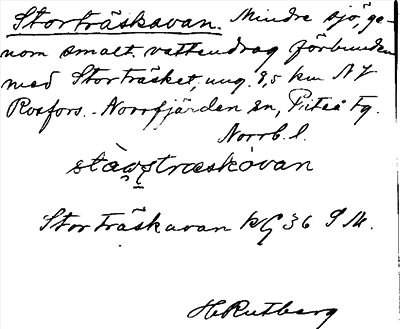 Storträskavan. Mindre sjö, ge-
nom smalt vattendrag förbunden
med Storträsket, ung. 8,5 km NV
Rosfors. - Norrfjärden sn, Piteå tg.
Norrb. l.
Storträskavan kG 36 S 14.
H Rutberg